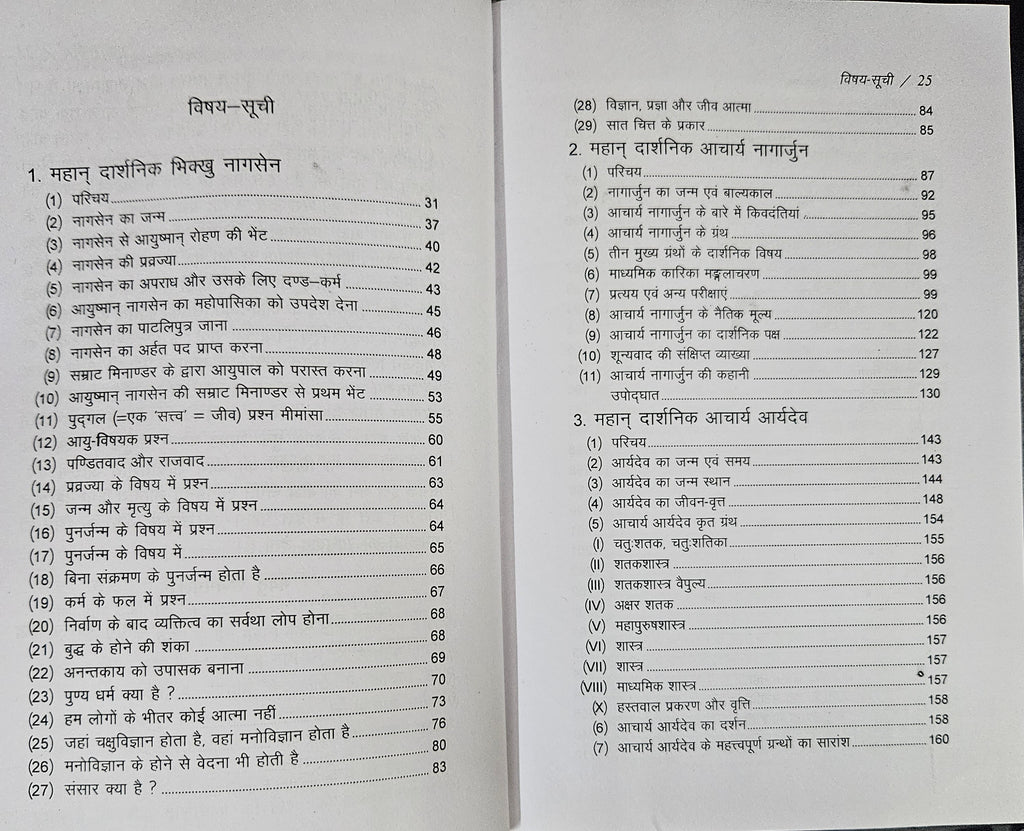 विषय–सूची
1. महान् दार्शनिक भिक्खु नागसेन
(1) परिचय 31
(2) नागसेन का जन्म 37
(3) नागसेन से आयुष्मान् रोहण की भेंट 40
(4) नागसेन की प्रव्रज्या 42
(5) नागसेन का अपराध और उसके लिए दण्ड–कर्म 43
(6) आयुष्मान् नागसेन का महोपासिका को उपदेश देना 45
(7) नागसेन का पाटलिपुत्र जाना 46
(8) नागसेन का अर्हत पद प्राप्त करना 48
(9) सम्राट मिनाण्डर के द्वारा आयुपाल को परास्त करना 49
(10) आयुष्मान् नागसेन की सम्राट मिनाण्डर से प्रथम भेंट 53
(11) पुद्गल (=एक 'सत्त्व' = जीव) प्रश्न मीमांसा 55
(12) आयु-विषयक प्रश्न 60
(13) पण्डितवाद और राजवाद 61
(14) प्रव्रज्या के विषय में प्रश्न 63
(15) जन्म और मृत्यु के विषय में प्रश्न 64
(16) पुनर्जन्म के विषय में प्रश्न 64
(17) पुनर्जन्म के विषय में 65
(18) बिना संक्रमण के पुनर्जन्म होता है 66
(19) कर्म के फल में प्रश्न 67
(20) निर्वाण के बाद व्यक्तित्व का सर्वथा लोप होना 68
(21) बुद्ध के होने की शंका 68
(22) अनन्तकाय को उपासक बनाना 69
(23) पुण्य धर्म क्या है ? 70
(24) हम लोगों के भीतर कोई आत्मा नहीं 73
(25) जहां चक्षुविज्ञान होता है, वहां मनोविज्ञान होता है 76
(26) मनोविज्ञान के होने से वेदना भी होती है 80
(27) संसार क्या है ? 83
विषय-सूची / 25
(28) विज्ञान, प्रज्ञा और जीव आत्मा 84
(29) सात चित्त के प्रकार 85
2. महान् दार्शनिक आचार्य नागार्जुन
(1) परिचय 87
(2) नागार्जुन का जन्म एवं बाल्यकाल 92
(3) आचार्य नागार्जुन के बारे में किवदंतियां 95
(4) आचार्य नागार्जुन के ग्रंथ 96
(5) तीन मुख्य ग्रंथों के दार्शनिक विषय 98
(6) माध्यमिक कारिका मङ्गलाचरण 99
(7) प्रत्यय एवं अन्य परीक्षाएं 99
(8) आचार्य नागार्जुन के नैतिक मूल्य 120
(9) आचार्य नागार्जुन का दार्शनिक पक्ष 122
(10) शून्यवाद की संक्षिप्त व्याख्या 127
(11) आचार्य नागार्जुन की कहानी 129
उपोद्घात 130
3. महान् दार्शनिक आचार्य आर्यदेव
(1) परिचय 143
(2) आर्यदेव का जन्म एवं समय 143
(3) आर्यदेव का जन्म स्थान 144
(4) आर्यदेव का जीवन-वृत्त 148
(5) आचार्य आर्यदेव कृत ग्रंथ 154
(I) चतुःशतक, चतुःशतिका 155
(II) शतकशास्त्र 156
(III) शतकशास्त्र वैपुल्य 156
(IV) अक्षर शतक 156
(V) महापुरुषशास्त्र 156
(VI) शास्त्र 157
(VII) शास्त्र 157
(VIII) माध्यमिक शास्त्र 157
(X) हस्तवाल प्रकरण और वृत्ति 158
(6) आचार्य आर्यदेव का दर्शन 158
(7) आचार्य आर्यदेव के महत्त्वपूर्ण ग्रन्थों का सारांश 160